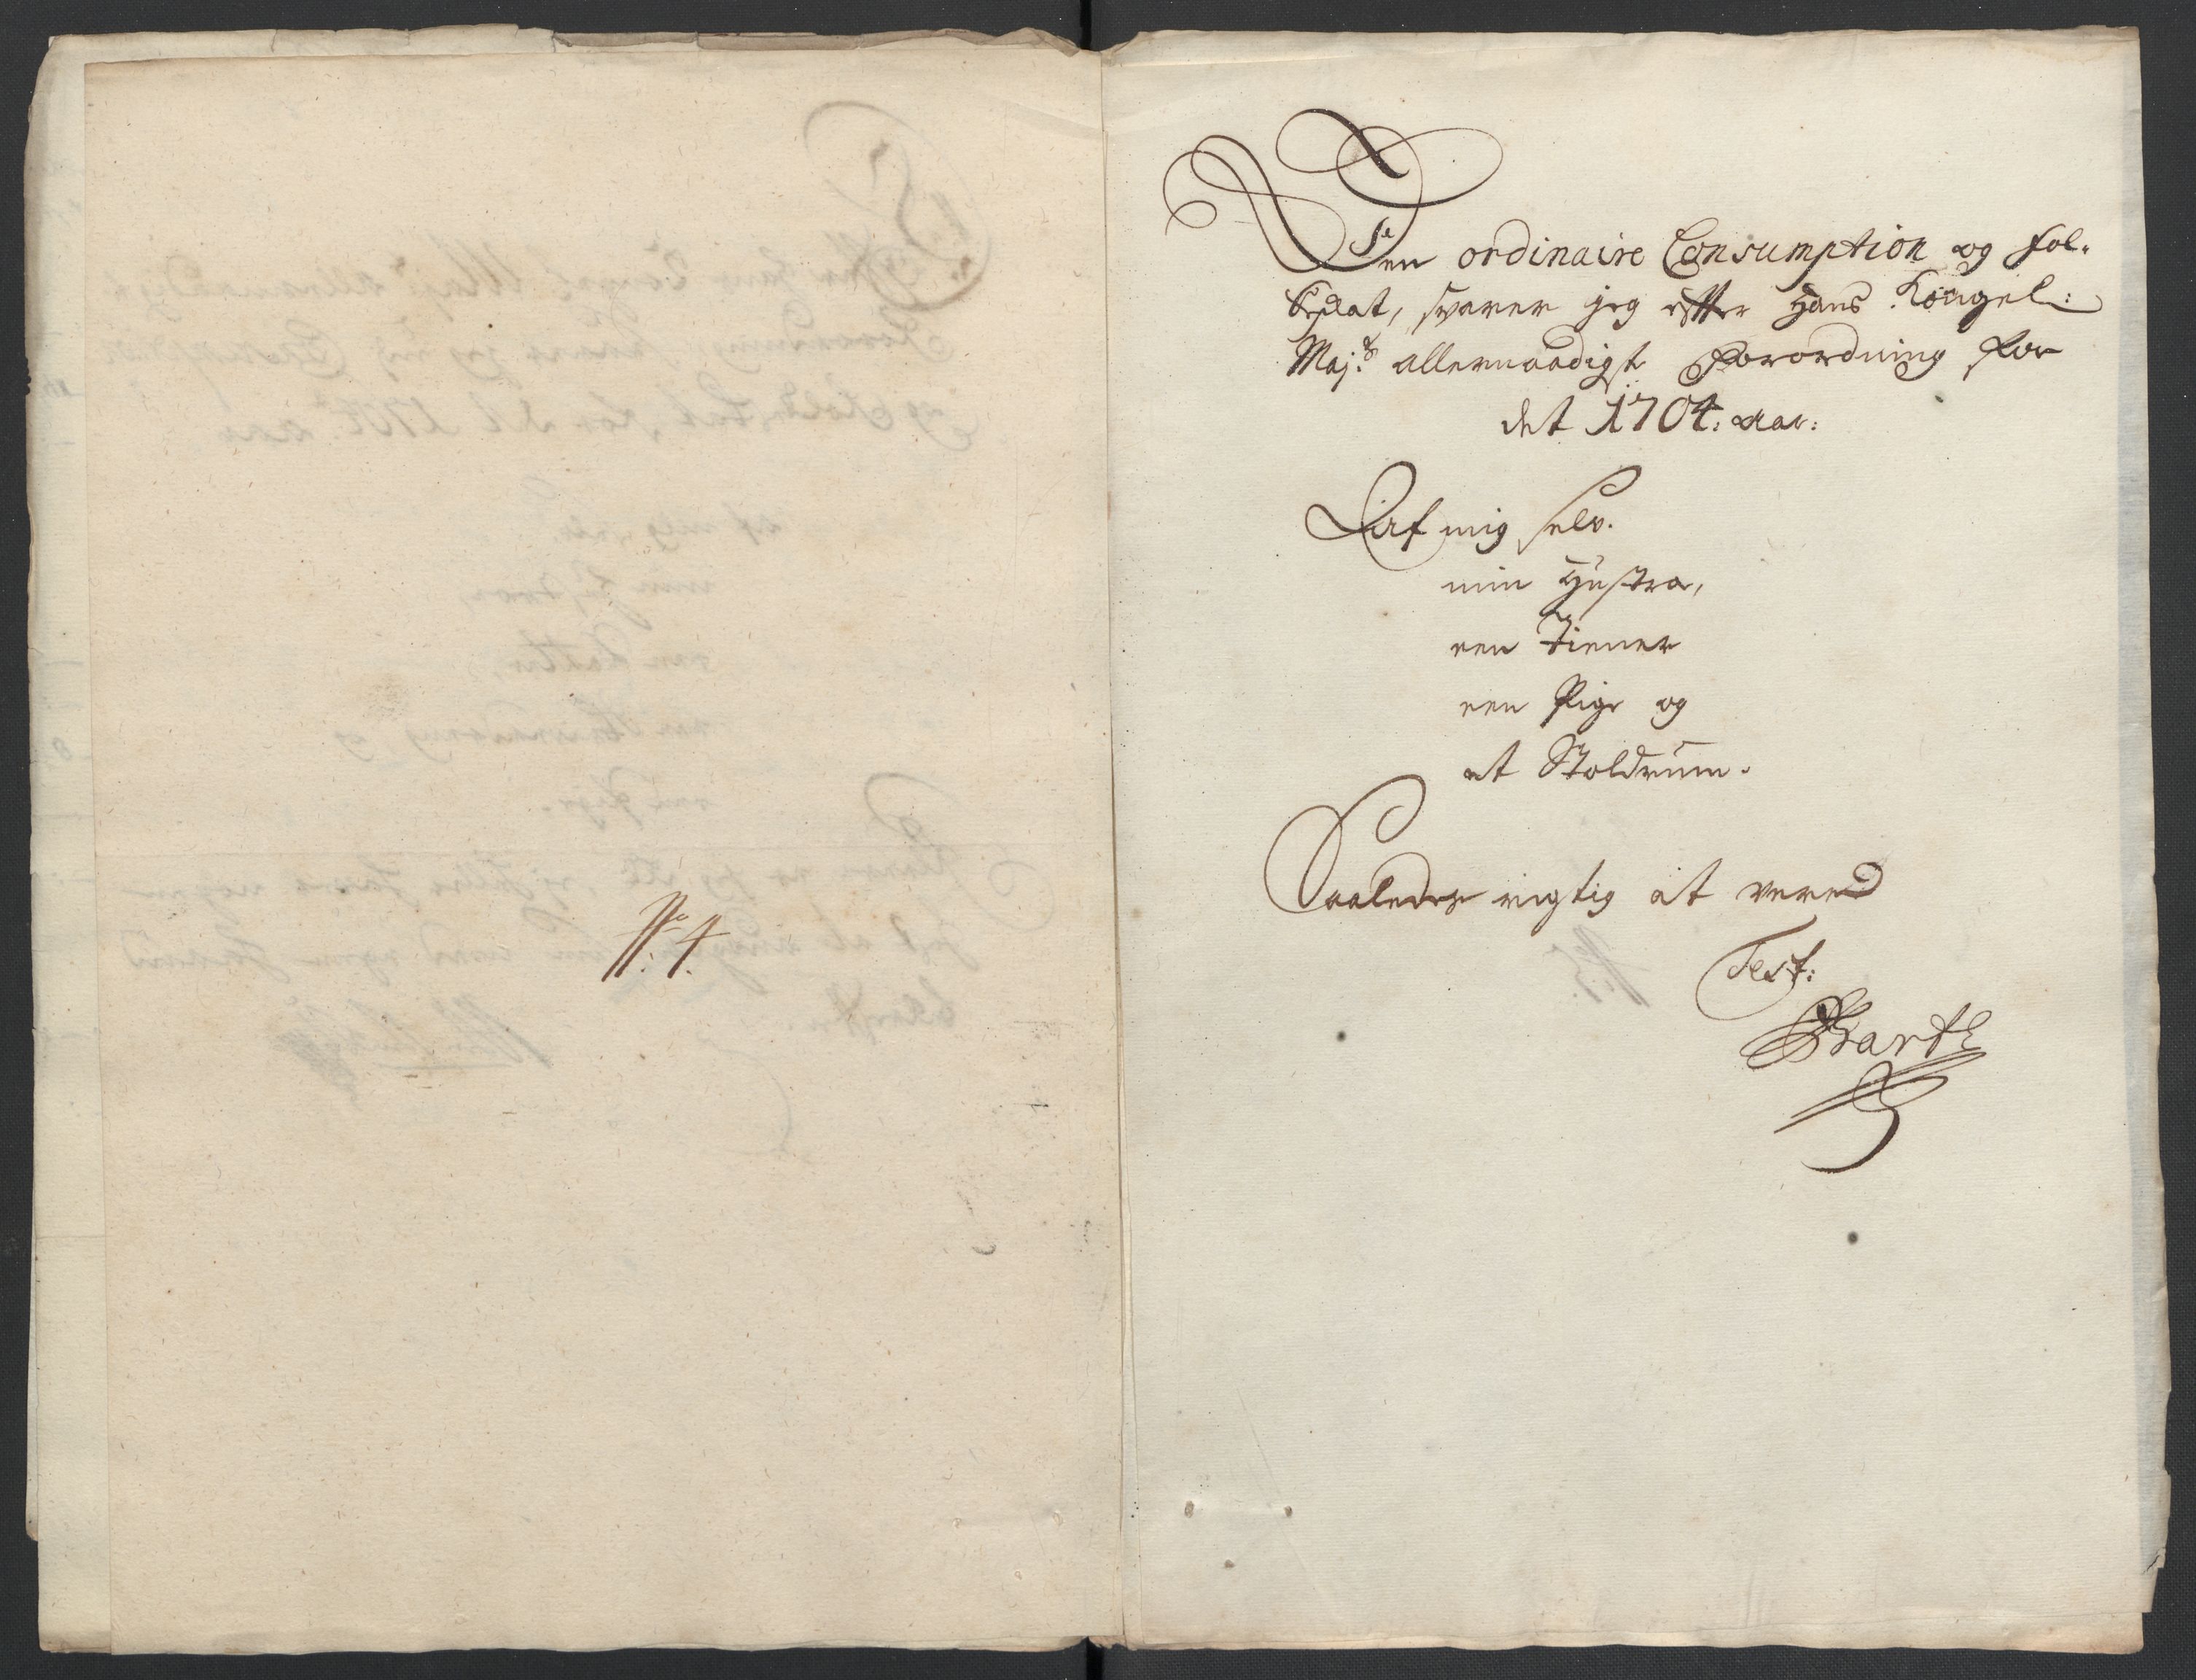 No. 4.
Den ordinaire Consumption og Fol-
keskat, svarer jeg effter Hans Kongel:
Maj:ts allernaadigste Forordning for
det 1704: aar:
Af mig selv.
min Hustro,
een Tiener
een Pige og
et Stoldrum.
Saaledes rigtig at være
Test: